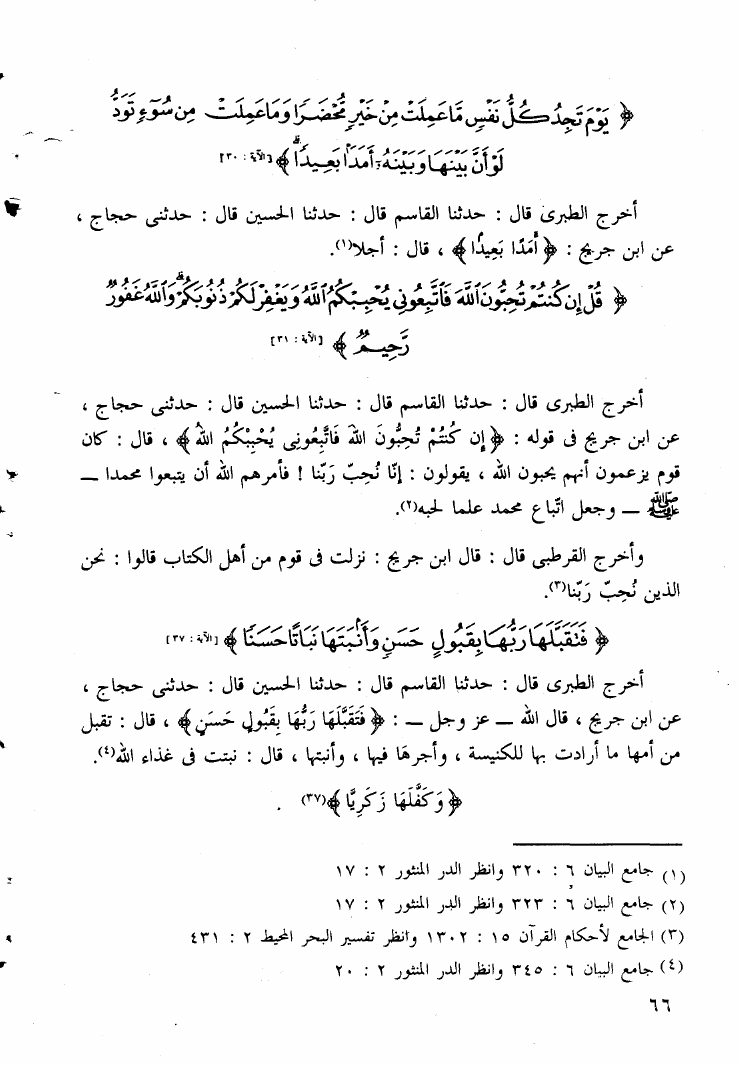 ﴿ يَوْمَ تَجِدُ كُلُّ نَفْسٍ مَّا عَمِلَتْ مِنْ خَيْرٍ مُّحْضَرًا وَمَا عَمِلَتْ مِن سُوٓءٍ تَوَدُّ
لَوْ أَنَّ بَيْنَهَا وَبَيْنَهُۥٓ أَمَدًۢا بَعِيدًا ۗ ﴾ [الآية : ٣٠]
أخرج الطبرى قال : حدثنا القاسم قال : حدثنا الحسين قال : حدثنى حجاج ،
عن ابن جريج : ﴿ أَمَدًا بَعِيدًا ﴾ ، قال : أجلا(١).
﴿ قُلْ إِن كُنتُمْ تُحِبُّونَ ٱللَّهَ فَٱتَّبِعُونِى يُحْبِبْكُمُ ٱللَّهُ وَيَغْفِرْ لَكُمْ ذُنُوبَكُمْ ۗ وَٱللَّهُ غَفُورٌ
رَّحِيمٌ ﴾ [الآية : ٣١]
أخرج الطبرى قال : حدثنا القاسم قال : حدثنا الحسين قال : حدثنى حجاج ،
عن ابن جريج فى قوله : ﴿ إِن كُنتُمْ تُحِبُّونَ اللهَ فَاتَّبِعُونِى يُحْبِبْكُمُ اللهُ ﴾ ، قال : كان
قوم يزعمون أنهم يحبون الله ، يقولون : إنّا نُحِبّ رَبّنا ! فأمرهم الله أن يتبعوا محمدا ــ
ﷺ ــ وجعل اتّباع محمد علما لحبه(٢).
وأخرج القرطبى قال : قال ابن جريج : نزلت فى قوم من أهل الكتاب قالوا : نحن
الذين نُحِبّ رَبّنا(٣).
﴿ فَتَقَبَّلَهَا رَبُّهَا بِقَبُولٍ حَسَنٍ وَأَنۢبَتَهَا نَبَاتًا حَسَنًا ﴾ [الآية : ٣٧]
أخرج الطبرى قال : حدثنا القاسم قال : حدثنا الحسين قال : حدثنى حجاج ،
عن ابن جريج ، قال الله ــ عز وجل ــ : ﴿ فَتَقَبَّلَهَا رَبُّهَا بِقَبُولٍ حَسَنٍ ﴾ ، قال : تقبل
من أمها ما أرادت بها للكنيسة ، وأجرهَا فيها ، وأنبتها ، قال : نبتت فى غذاء الله(٤).
﴿ وَكَفَّلَهَا زَكَرِيَّا ﴾(٣٧) .
(١) جامع البيان ٦ : ٣٢٠ وانظر الدر المنثور ٢ : ١٧
(٢) جامع البيان ٦ : ٣٢٣ وانظر الدر المنثور ٢ : ١٧
(٣) الجامع لأحكام القرآن ١٥ : ١٣٠٢ وانظر تفسير البحر المحيط ٢ : ٤٣١
(٤) جامع البيان ٦ : ٣٤٥ وانظر الدر المنثور ٢ : ٢٠
٦٦